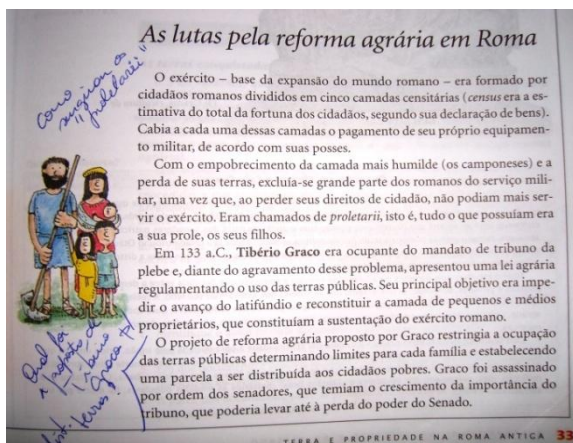 As lutas pela reforma agrária em Roma
como
surgiram os
"proletarii"
O exército – base da expansão do mundo romano – era formado por
cidadãos romanos divididos em cinco camadas censitárias (census era a es-
timativa do total da fortuna dos cidadãos, segundo sua declaração de bens).
Cabia a cada uma dessas camadas o pagamento de seu próprio equipamen-
to militar, de acordo com suas posses.
Com o empobrecimento da camada mais humilde (os camponeses) e a
perda de suas terras, excluía-se grande parte dos romanos do serviço mili-
tar, uma vez que, ao perder seus direitos de cidadão, não podiam mais ser-
vir o exército. Eram chamados de proletarii, isto é, tudo o que possuíam era
a sua prole, os seus filhos.
Em 133 a.C., Tibério Graco era ocupante do mandato de tribuno da
plebe e, diante do agravamento desse problema, apresentou uma lei agrária
regulamentando o uso das terras públicas. Seu principal objetivo era impe-
dir o avanço do latifúndio e reconstituir a camada de pequenos e médios
proprietários, que constituíam a sustentação do exército romano.
O projeto de reforma agrária proposto por Graco restringia a ocupação
das terras públicas determinando limites para cada família e estabelecendo
uma parcela a ser distribuída aos cidadãos pobres. Graco foi assassinado
por ordem dos senadores, que temiam o crescimento da importância do
tribuno, que poderia levar até à perda do poder do Senado.
Qual foi
a proposta do
tribuno
Graco p/
terras?
TERRA E PROPRIEDADE NA ROMA ANTIGA 33